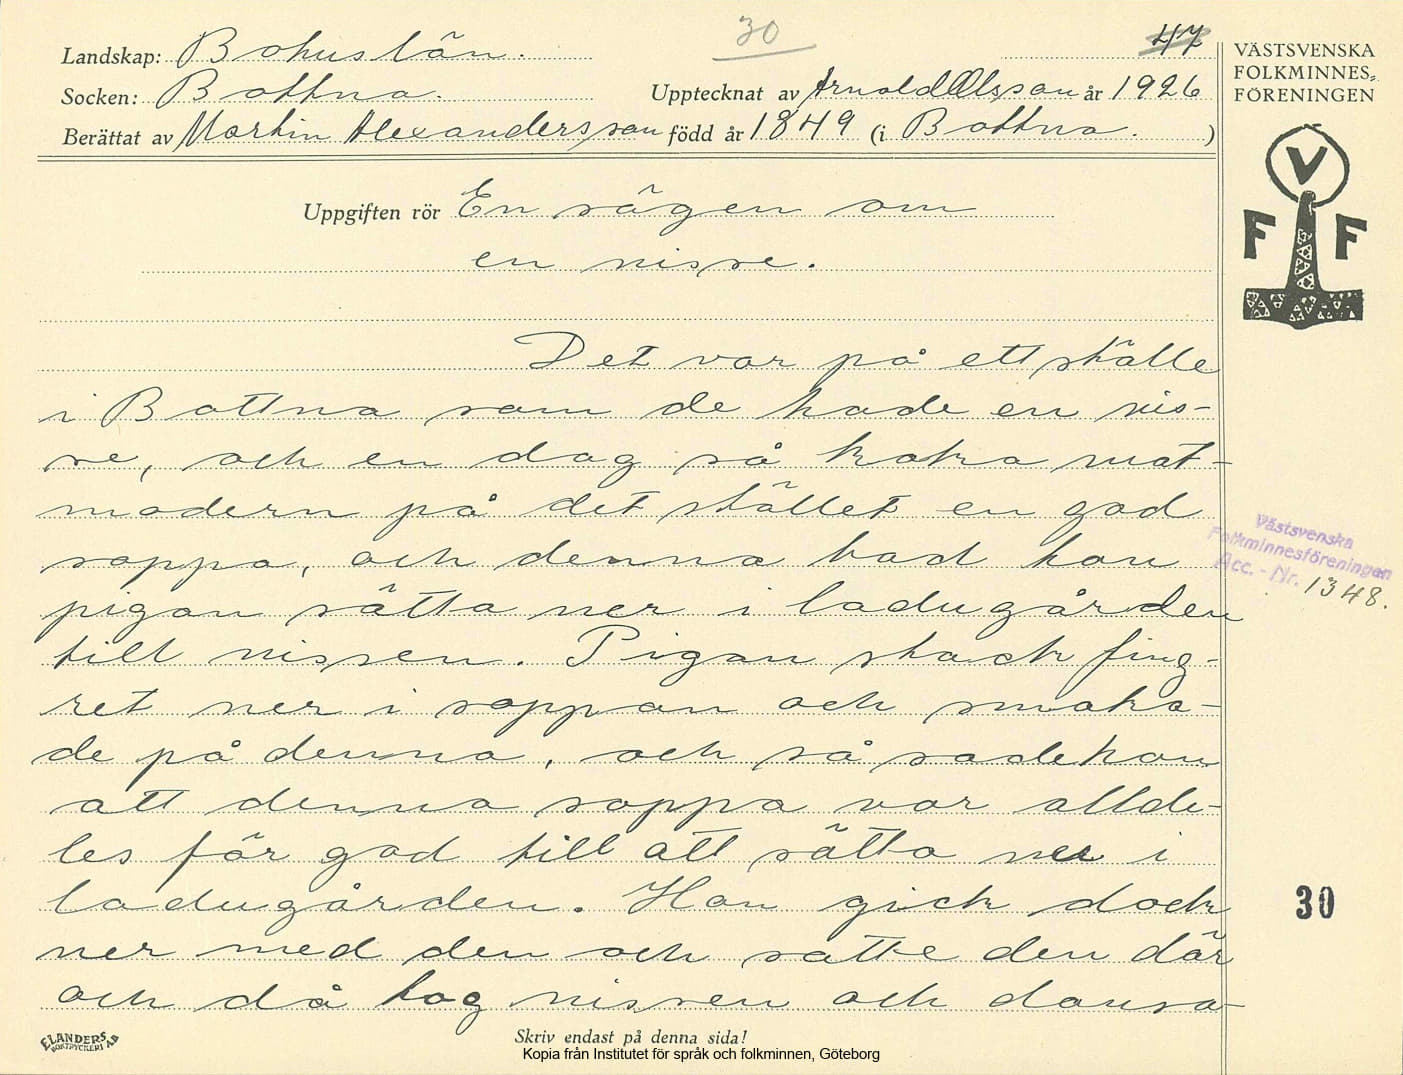 30
47
Landskap: Bohuslän.
Socken: Bottna.
Upptecknat av Arnold Olsson år 1926
Berättat av Martin Alexandersson född år 1849 (i Bottna.)
VÄSTSVENSKA
FOLKMINNES=
FÖRENINGEN
V
F F
Uppgiften rör En sägen om
en nisse.
Det var på ett ställe
i Bottna som de hade en nis-
se, och en dag så koka mat-
modern på det stället en god
soppa, och denna bad hon
pigan sätta ner i ladugården
till nissen. Pigan stack fing-
ret ner i soppan och smaka-
de på denna, och så sade hon
att denna soppa var allde-
les för god till att sätta ner i
ladugården. Hon gick dock
ner med den och satte den där
och då tog nissen och dansa-
Västsvenska
Folkminnesföreningen
Acc. - Nr. 1348.
30
ELANDERS
BOKTRYCKERI AB
Skriv endast på denna sida!
Kopia från Institutet för språk och folkminnen, Göteborg